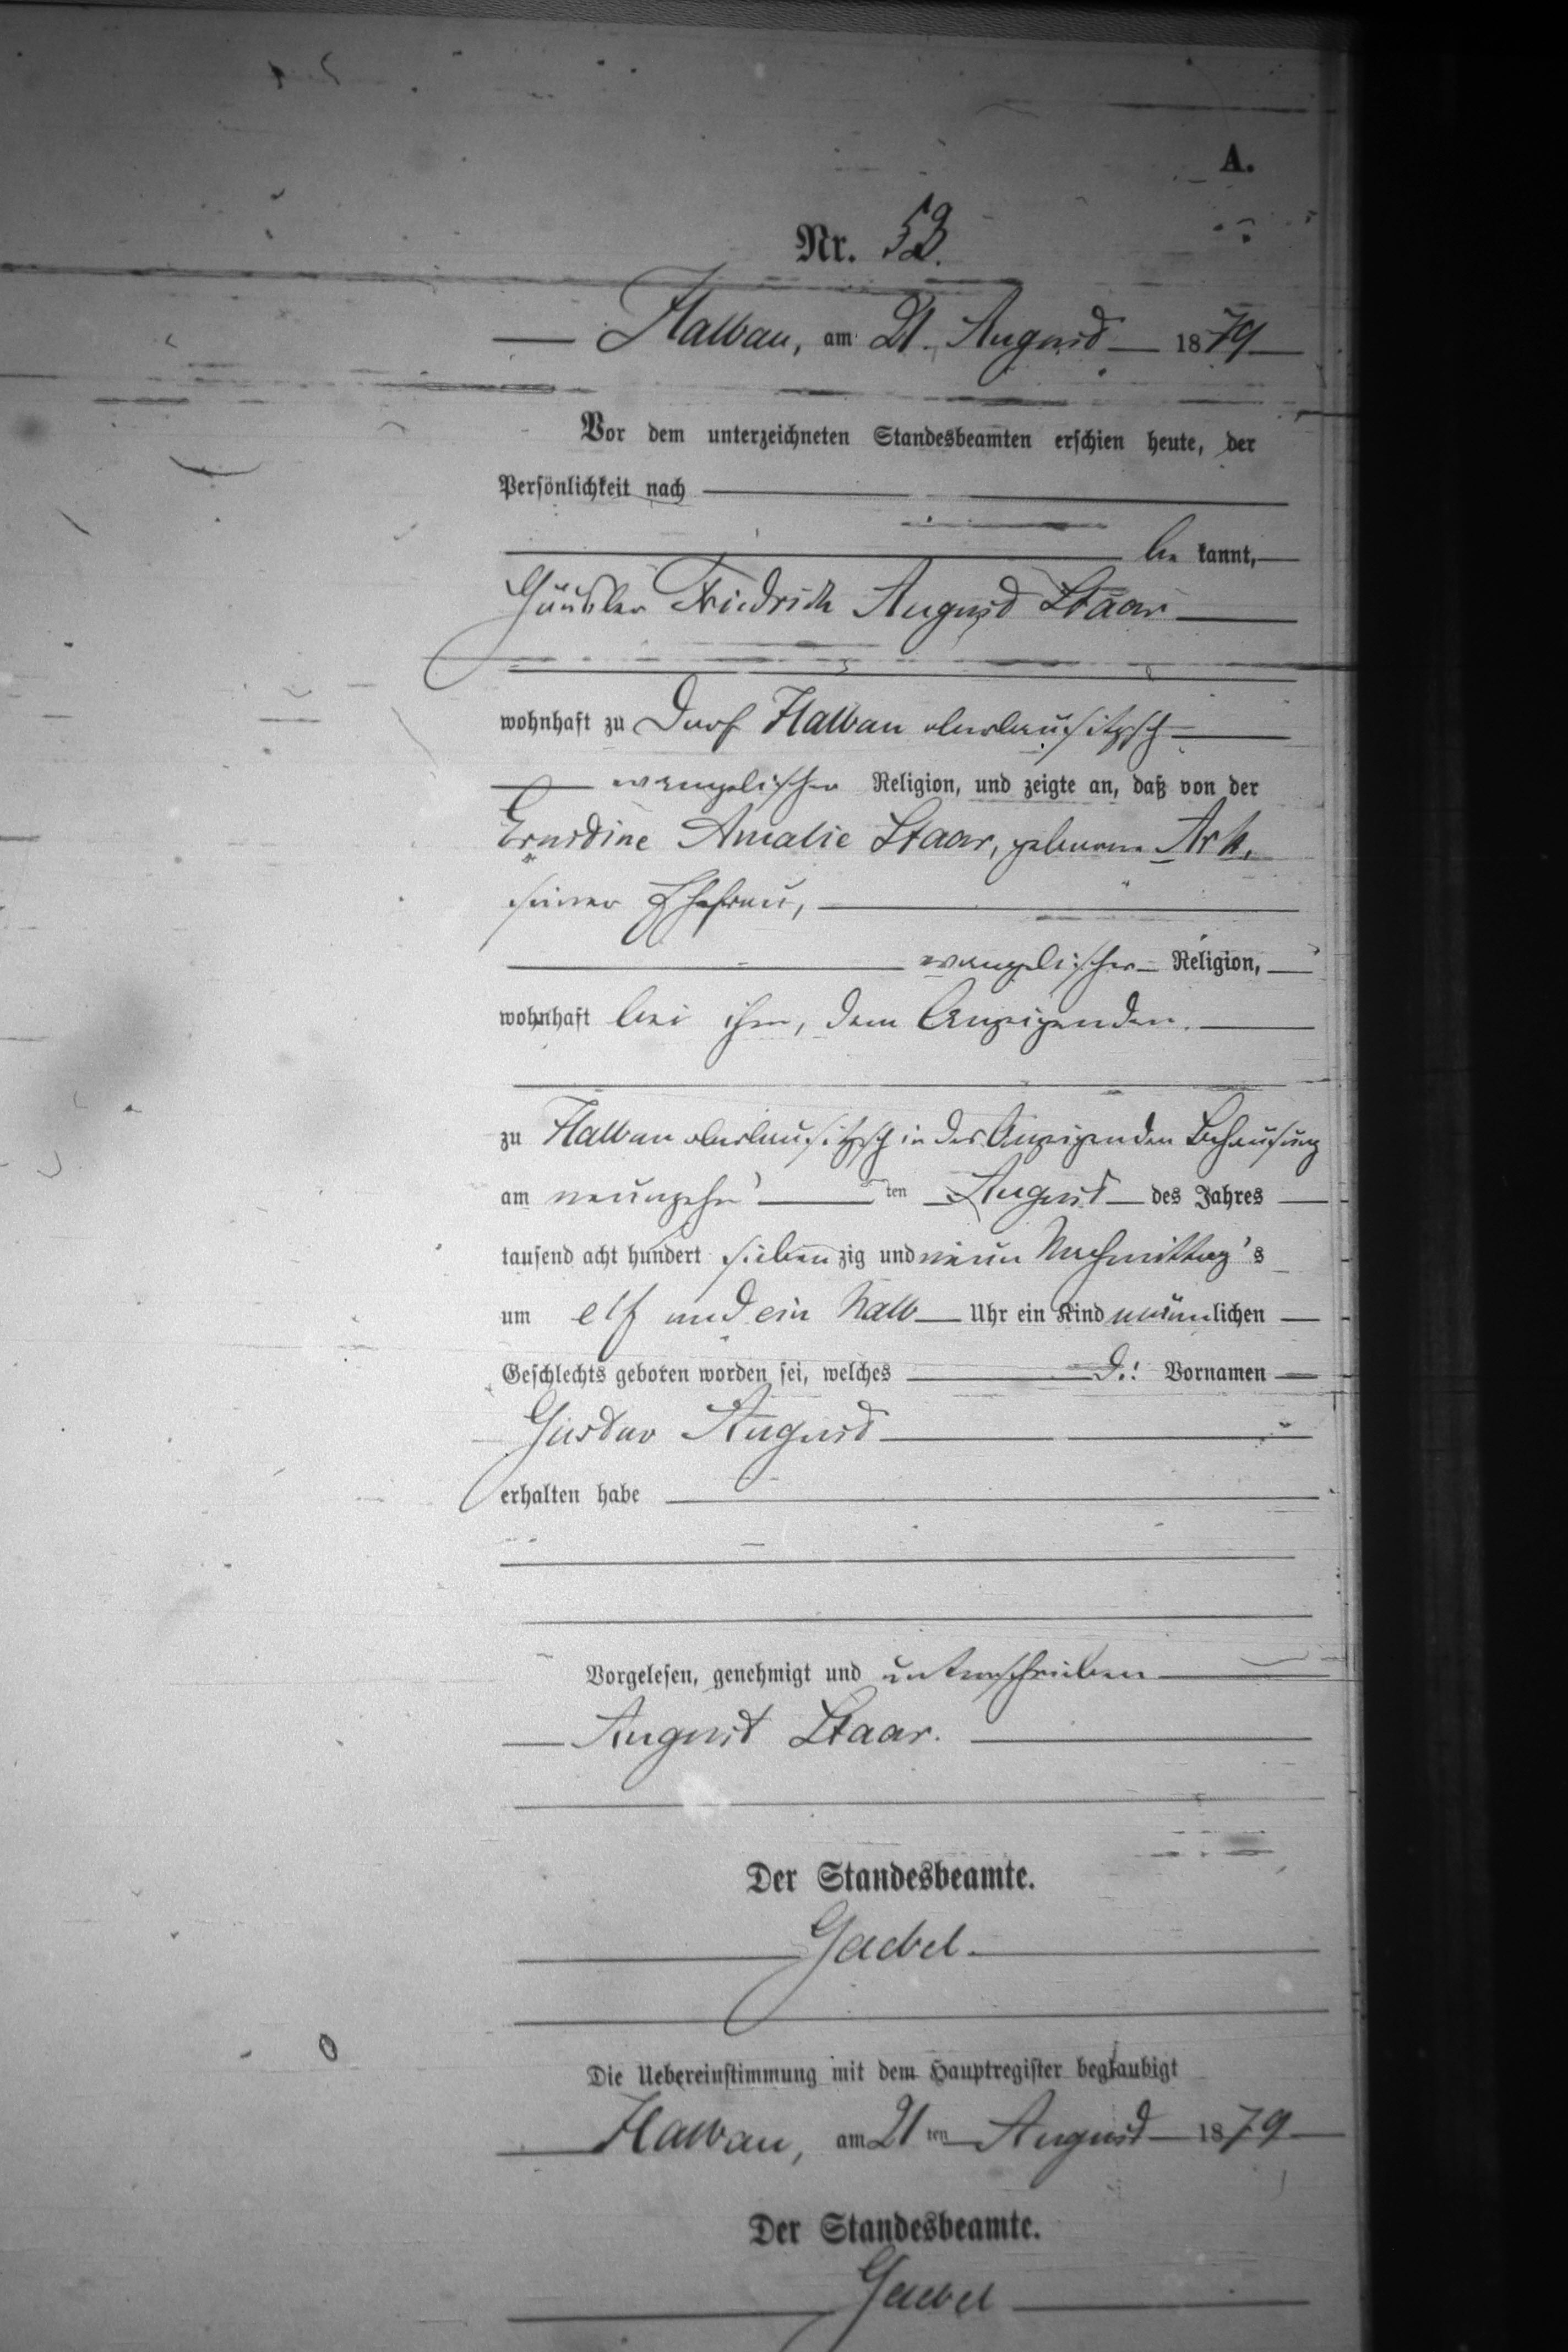 A.
Nr. 53.
Halbau, am 21. August 1879
Vor dem unterzeichneten Standesbeamten erschien heute, der
Persönlichkeit nach
be kannt,
Häusler Friedrich August Staar
wohnhaft zu Dorf Halbau oberlausitzsch
evangelischer Religion, und zeigte an, daß von der
Ernstine Amalie Staar, geborene Ark,
seiner Ehefrau,
evangelischer Religion,
wohnhaft bei ihm, dem Anzeigenden.
zu Halbau oberlausitzsch in des Anzeigenden Behausung
am neunzehn ten August des Jahres
tausend acht hundert sieben zig und neun Nachmittag's
um elf und ein halb Uhr ein Kind männlichen
Geschlechts geboren worden sei, welches d.: Vornamen
Gustav August
erhalten habe
Vorgelesen, genehmigt und unterschrieben
August Staar.
Der Standesbeamte.
Gaebel.
Die Uebereinstimmung mit dem Hauptregister beglaubigt
Halbau, am 21 ten August 1879
Der Standesbeamte.
Gaebel